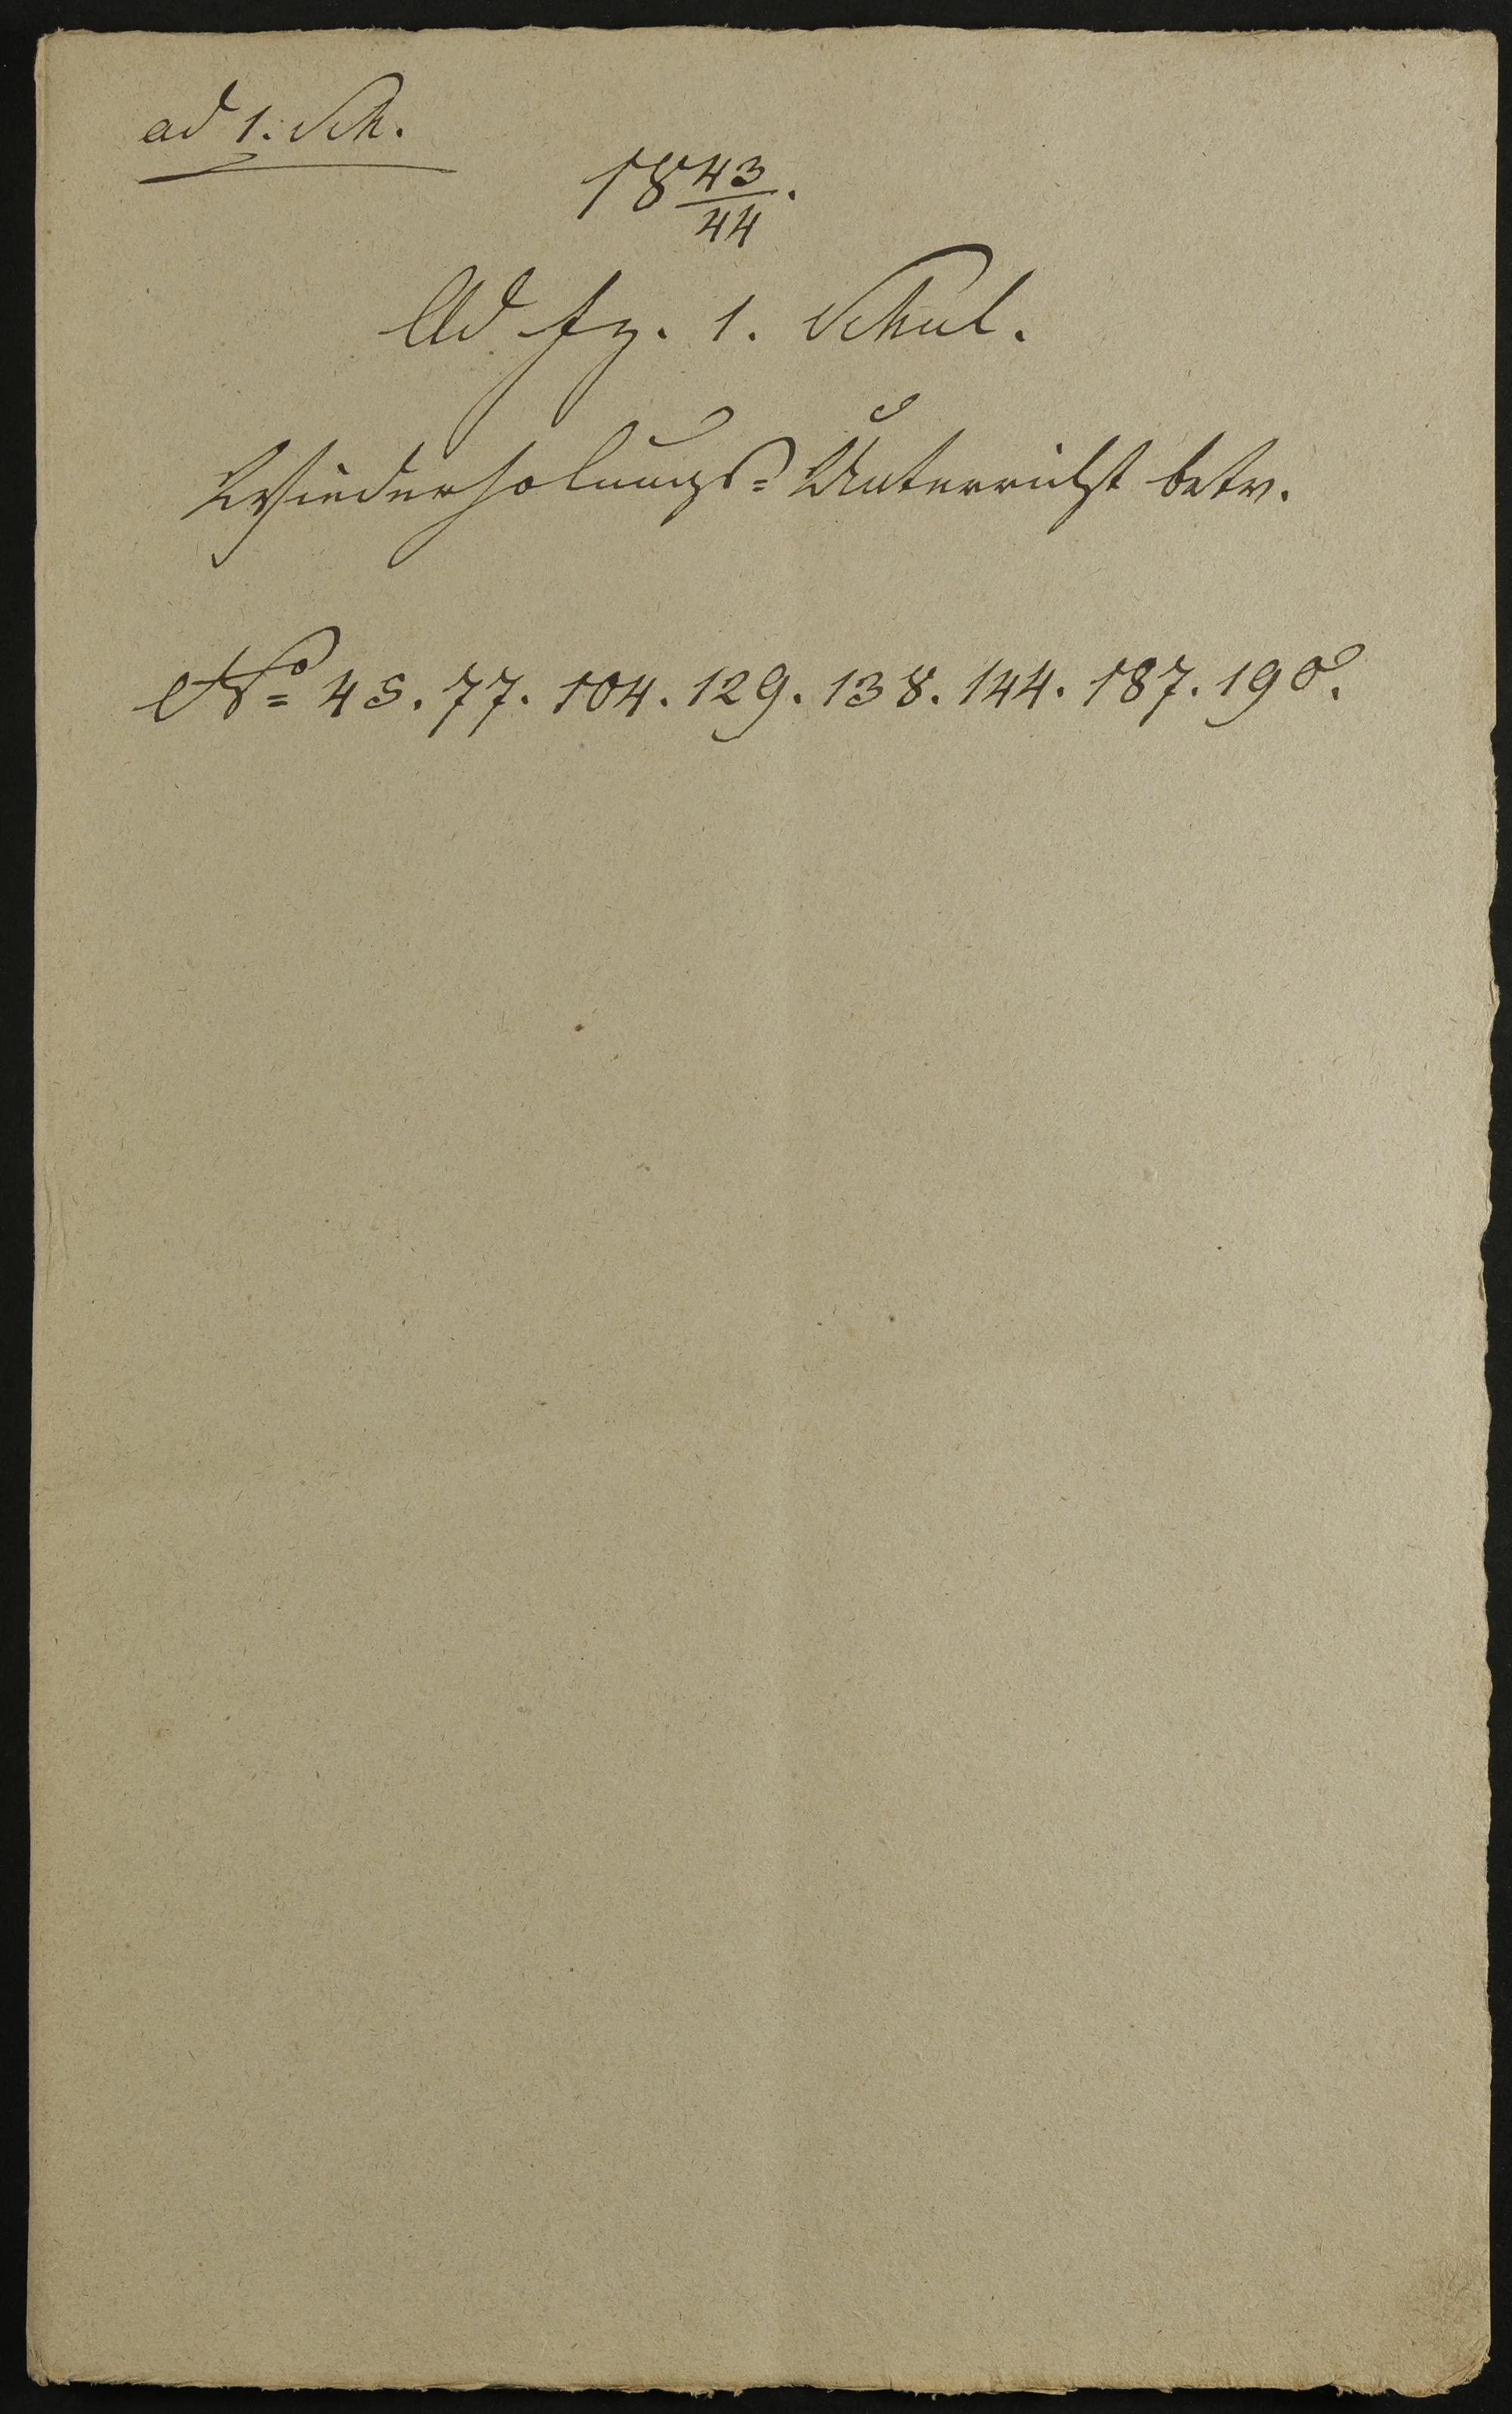 ad 1. Sch.
1843/44.
Ad fz. 1. Schul.
Wiederholungs=Unterricht betr.
No= 45. 77. 104. 129. 138. 144. 187. 190.